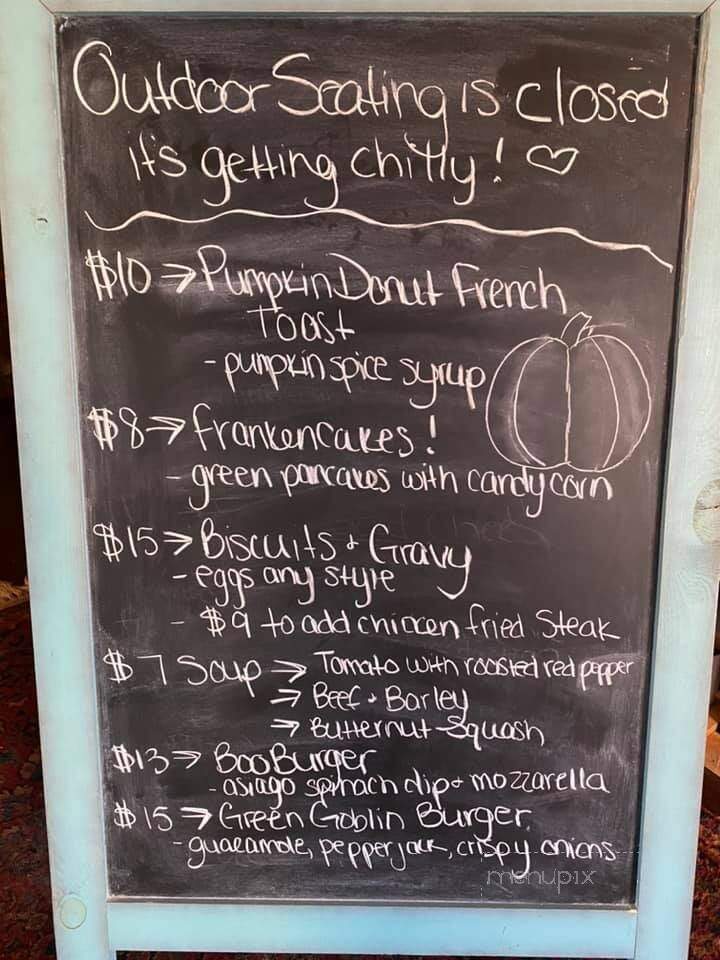 Outdoor Seating is closed
it's getting chilly! ♡
$10 → Pumpkin Donut French
Toast
- pumpkin spice syrup
$8 → frankencakes!
- green pancakes with candy corn
$15 → Biscuits + Gravy
- eggs any style
- $9 to add chicken fried Steak
$7 Soup → Tomato with roasted red pepper
→ Beef + Barley
→ Butternut Squash
$13 → Boo Burger
- asiago spinach dip + mozzarella
$15 → Green Goblin Burger
- guacamole, pepperjack, crispy onions
menupix